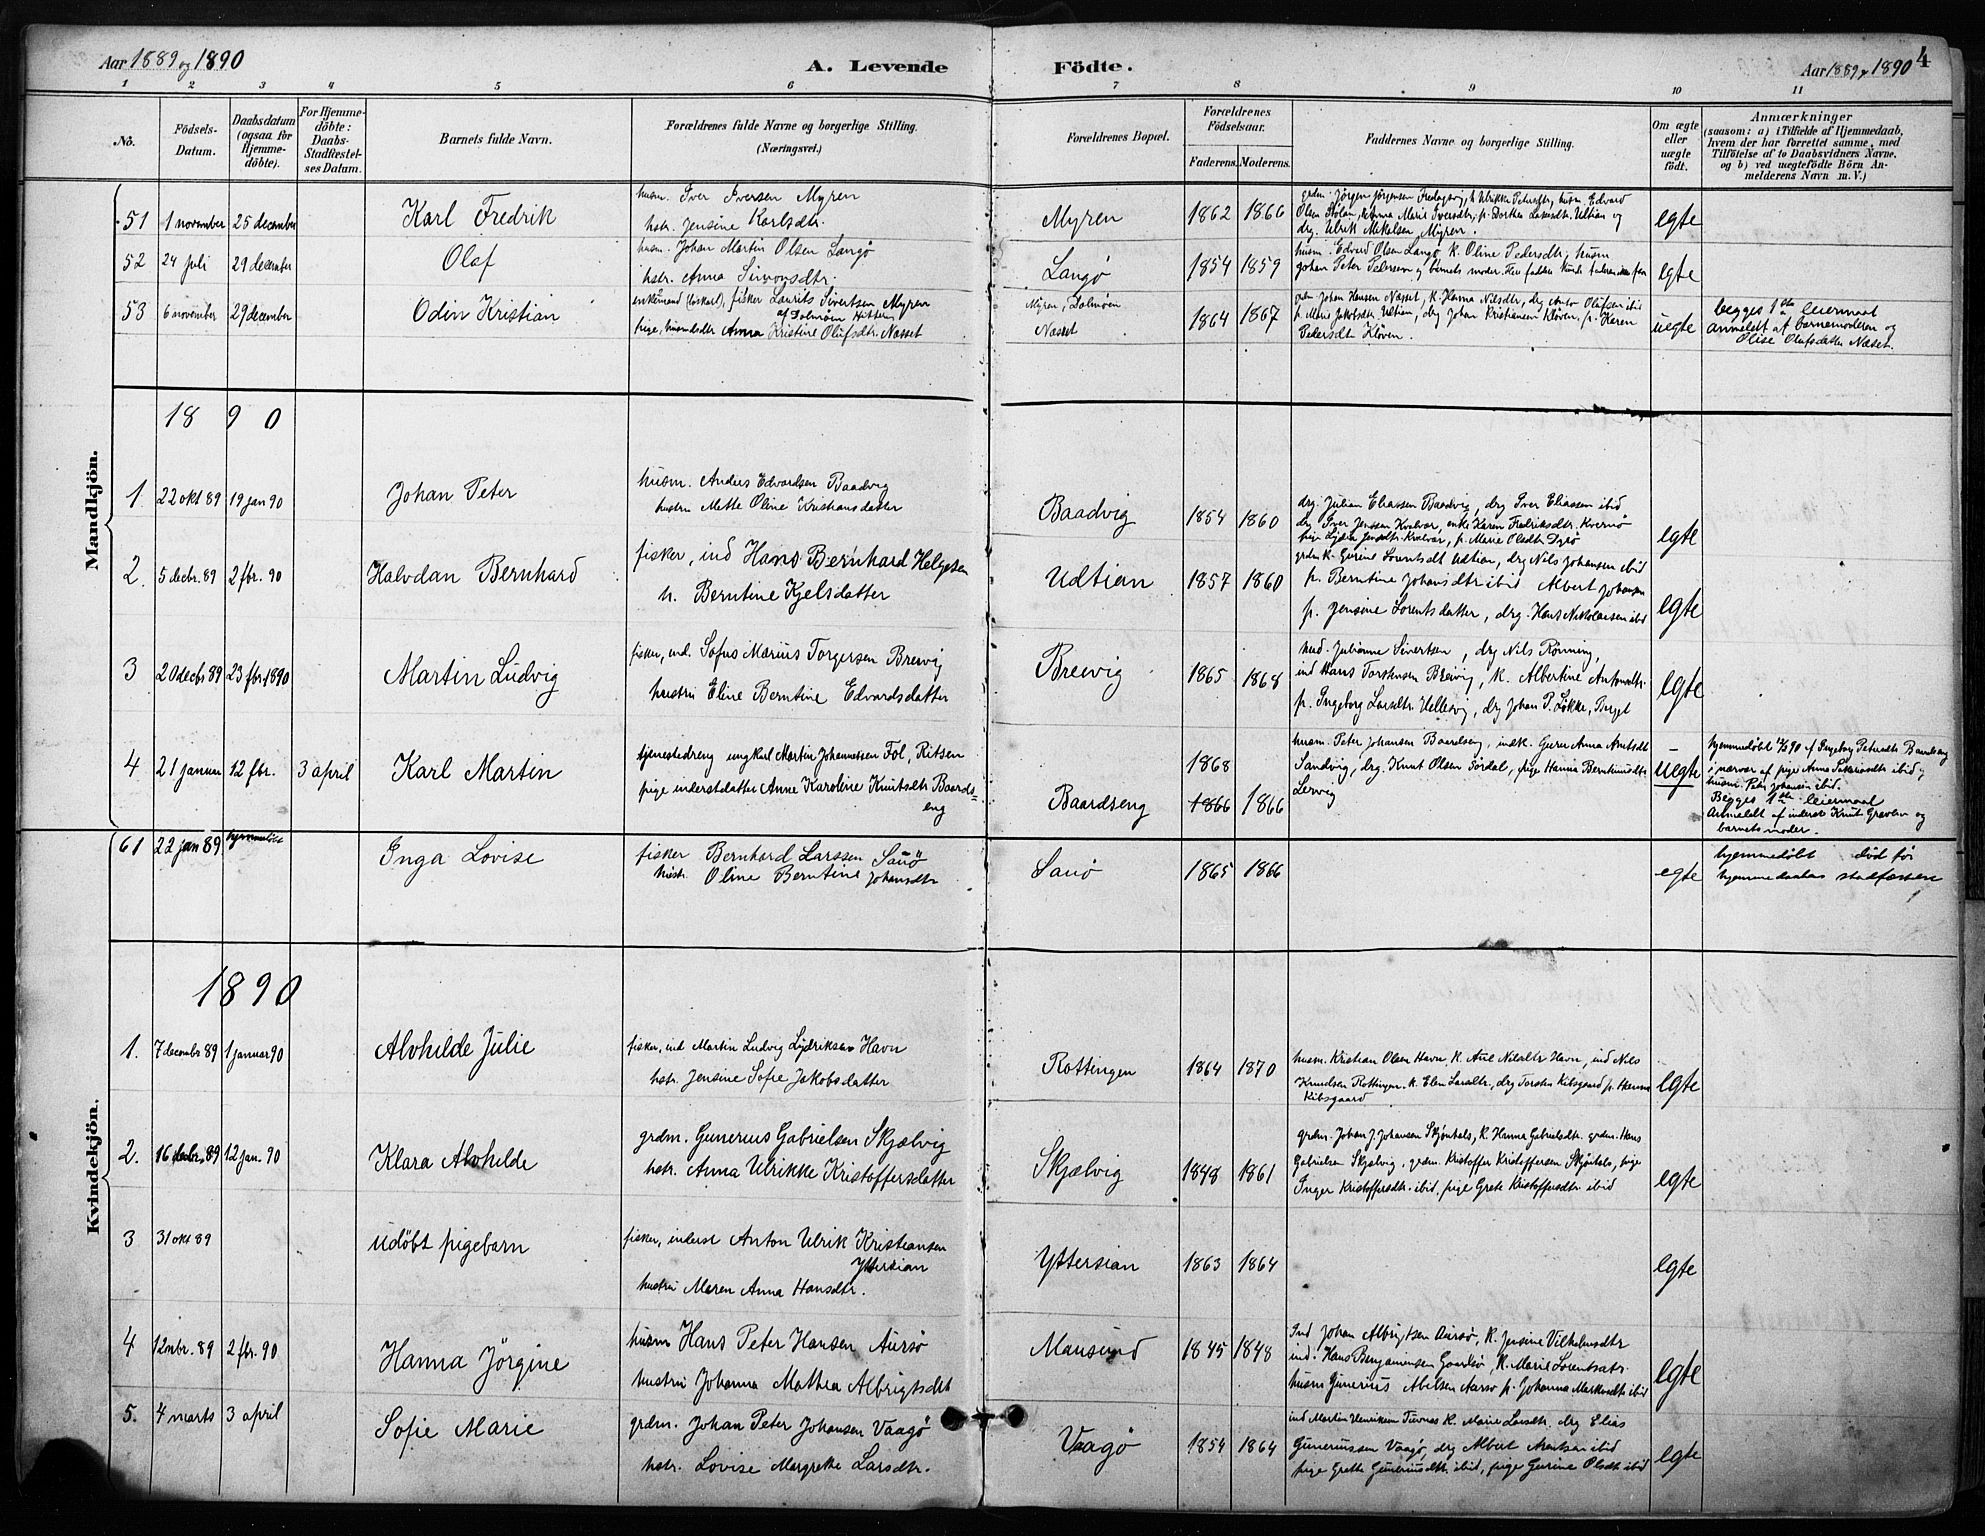 Aar 1889 og 1890
A. Levende
Födte.
Aar 1889 1890
4
1 2 3 4 5 6 7 8 9 10 11
No.
Födsels-Datum.
Daabsdatum (ogsaa for Hjemme-döbte).
For Hjemme-döbte: Daabs-Stadfæstel-ses Datum.
Barnets fulde Navn.
Forældrenes fulde Navne og borgerlige Stilling.
(Næringsvei.)
Forældrenes Bopæl.
Forældrenes Födselsaar.
Faderens. Moderens.
Faddernes Navne og borgerlige Stilling.
Om ægte eller uægte födt.
Anmærkninger
(saasom: a) i Tilfælde af Hjemmedaab, hvem der har forrettet samme, med Tilföielse af to Daabsvidners Navne, og b) ved uegtefödte Börn An-melderens Navn m. V.)
Mandkjön.
51 1 november 25 december Karl Fredrik
husm. Iver Iversen Myren
hstr. Jensine Karlsdtr.
Myren 1862 1866
grdm. Jørgen Jørgensen
Olsen
drg. Ulrik Mikalsen Myren.
egte
52 24 juli 29 december Olaf
husm. Johan Martin Olsen Langø
hstr. Anna Simonsdtr.
Langø 1854 1859
husm. Edvard Olsen Langø k. Oline Pedersdtr, husm
Johan Peter
egte
53 6 november 29 december Odin Kristian
fisker Laurits Sivertsen Myren
af Dolmøen Hitteren
pige, Anna Kristine Olufsdtr. Næsset
Myren, Dolmøen
Næsset
1864 1867
Johan Hansen Næsset, k. Hanna Nilsdtr, drg Anton Olufsen ibid
p. Marie Jakobsdtr Udtian, drg Johan Kristiansen Kløven, p. Karen
Pedersdtr Kløven.
uegte
begges 1ste leiermaal
anmeldt af barnemoderen og
Olise Olufsdatter Næset.
1890
1 22 okt 89 19 jan 90 Johan Peter
husm. Anders Edvardsen Baadvig
hustru Mette Oline Kristiansdatter
Baadvig 1854 1860
drg. Julian Eliassen Baadvig, drg Iver Eliassen ibid
drg Iver Jenssen Kvalvær, enke Karen Fredriksdtr. Kvernø
pige Lydia Jensdtr. Kvalvær, p. Marie Olsdtr Dyrø
egte
2. 5 decbr. 89 2 fbr. 90 Halvdan Bernhard
fisker, ind Hans Bernhard Helgesen
h. Berntine Kjelsdatter
Udtian 1857 1860
grdm k. Gurine Lorentsdt Udtian, drg Nils Johansen ibid
p. Berntine Johansdtr ibid Albert Johansen
p. Jensine Lorentsdatter, drg. Hans Nikolaisen ibid
egte
3 20 decbr 89 23 fbr. 1890 Martin Ludvig
fisker, ind. Sofus Marius Torgersen Breivig
hustru Eline Berntine Edvardsdatter
Breivig 1865 1868
Julianne Sivertsen, drg Nils Rönning,
ind Hans Torstensen Breivig, k. Albertine Antonsdtr.
p. Ingeborg Larsdtr. Hellesvig, drg Johan P. Løkke,
egte
4 21 januar 12 fbr. 3 april Karl Martin
tjenestedreng ungkarl Martin Johannessen Fol, Ritsen
pige inderstdatter Anne Karoline Knutsdtr. Baards=
eng
Baardseng
1868
1866 1866
husm. Peter Johansen Baardseng, indk. Guru Anna
Sandvig, drg. Knut Olsen Sördal, pige Hanna Berntsdtr
Lervig
uegte
hjemmedøbt 12/2 90 af Ingeborg Petersdtr Baardseng
i nærvær af pige Anna ibid og
husm. Peter Johansen ibid.
Begges 1ste leiermaal
Anmeldt af inderst Knut og
barnets moder.
61 22 jan 89 hjemmedøbt Inga Lovise
fisker Bernhard Larssen Sanø
hustr. Oline Berntine Johansdtr
Sanø 1865 1866 egte
hjemmedøbt død før
hjemmedaabens stadfæstelse
Kvindekjön.
1890
1. 7 decembr 89 1 januar 90 Alvhilde Julie
fisker, ind Martin Ludvig Lydriksen Havn
hstr. Jensine Sofie Jakobsdatter
Rottingen 1864 1870
husm. Kristian Olsen Havn, k. Ane Nilsdtr Havn, ind Nils
Knudsen Rottingen, k. Elen Larsdtr, drg Torsten Kibsgaard p. Hanna
Kibsgaard
egte
2. 16 decbr. 89 12 jan. 90 Klara Alvhilde
grdm. Gunerius Gabrielsen Skjælvig
hstr. Anna Ulrikke Kristoffersdatter
Skjælvig 1848 1861
grdm. Johan J. Johansen Skjøntals, k. Hanna Gabrielsdtr. grdm. Hans
Gabrielsen Skjælvig, grdm. Kristoffer Kristoffersen Skjøntals, pige
Inger Kristoffersdtr. ibid. pige Grete Kristoffersdtr. ibid
egte
3 31 okt 89 udöbt pigebarn
fisker, inderst Anton Ulrik Kristiansen
Yttersian
hustru Maren Anna Hansdtr.
Yttersian 1863 1864 egte
4 12 nbr. 89 2 fbr. 90 Hanna Jörgine
husm Hans Peter Hansen Aursø
hustru Johanna Mathea Albrigtsdt
Mausund 1845 1848
Ind Johan Albrigtsen Aursø, k. Jensine Vilhelmsdtr
ind. Hans Benjaminsen k. Marie Lorentsdtr.
husm Gunerius Abelsen Aursø p. Johanna ibid
egte
5. 4 marts 3 april Sofie Marie
grdm. Johan Peter Johansen Vaagø
hstr. Lovise Margrethe Larsdtr.
Vaagø 1854 1864
ind Martin Henriksen k. Marie Larsdtr, drg Elias
Gunerussen Vaagø, drg Albert Arentsen ibid
pige Grethe Gunerusdtr ibid, pige Gurine Olsdtr ibid
egte